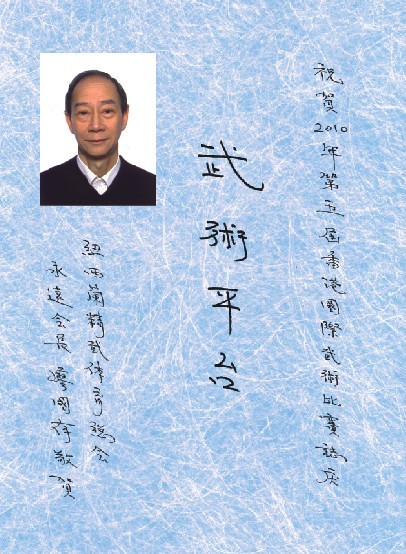 祝賀2010年第五屆香港國際武術比賽誌庆
武術平台
紐西蘭精武体育總会
永遠会長 廖國存敬賀